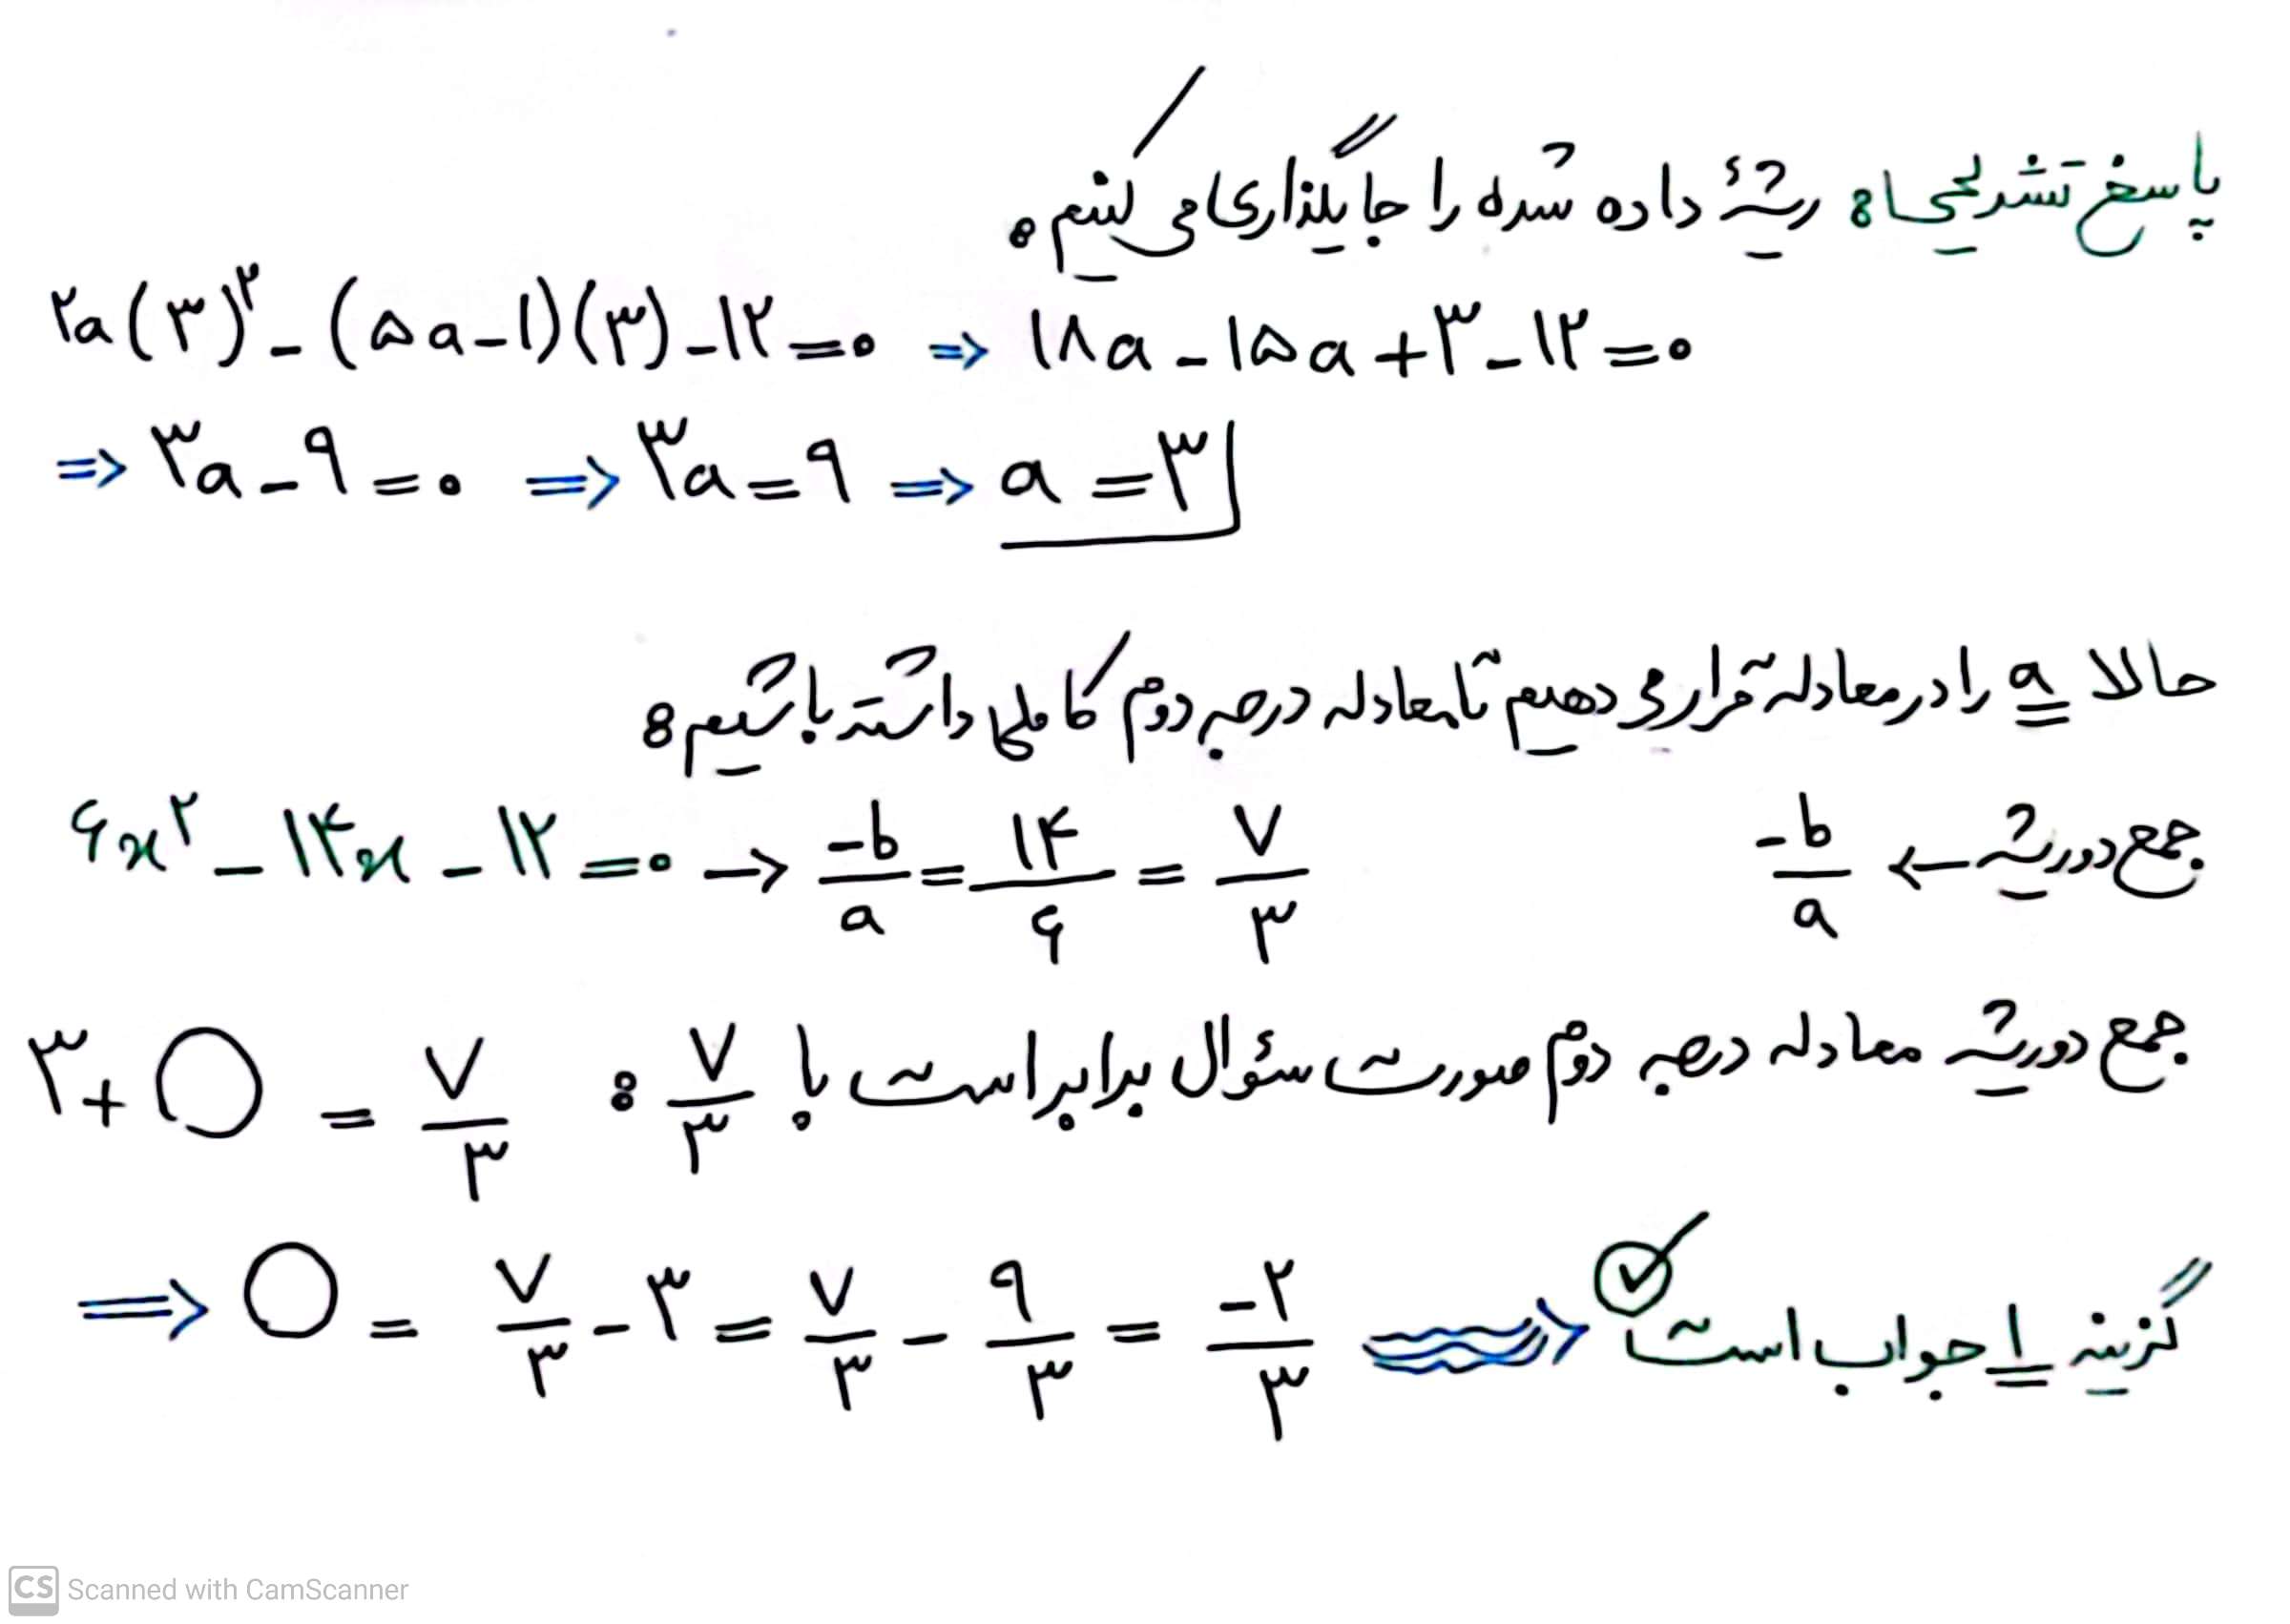 پاسخ تشریحی ۱: ریشهٔ داده شده را جایگذاری می کنیم:
۲a(۳)^۲ - (۵a-۱)(۳) - ۱۲ = ۰ => ۱۸a - ۱۵a + ۳ - ۱۲ = ۰
=> ۳a - ۹ = ۰ => ۳a = ۹ => a = ۳
حالا a را در معادله قرار می دهیم تا معادله درجه دوم کاملی داشته باشیم:
جمع دو ریشه ← -b/a ۶x^۲ - ۱۴x - ۱۲ = ۰ → -b/a = ۱۴/۶ = ۷/۳
جمع دو ریشه معادله درجه دوم صورت سؤال برابر است با ۷/۳ : ۳ + ○ = ۷/۳
=> ○ = ۷/۳ - ۳ = ۷/۳ - ۹/۳ = -۲/۳ => گزینه ۱ جواب است ✓
CS Scanned with CamScanner